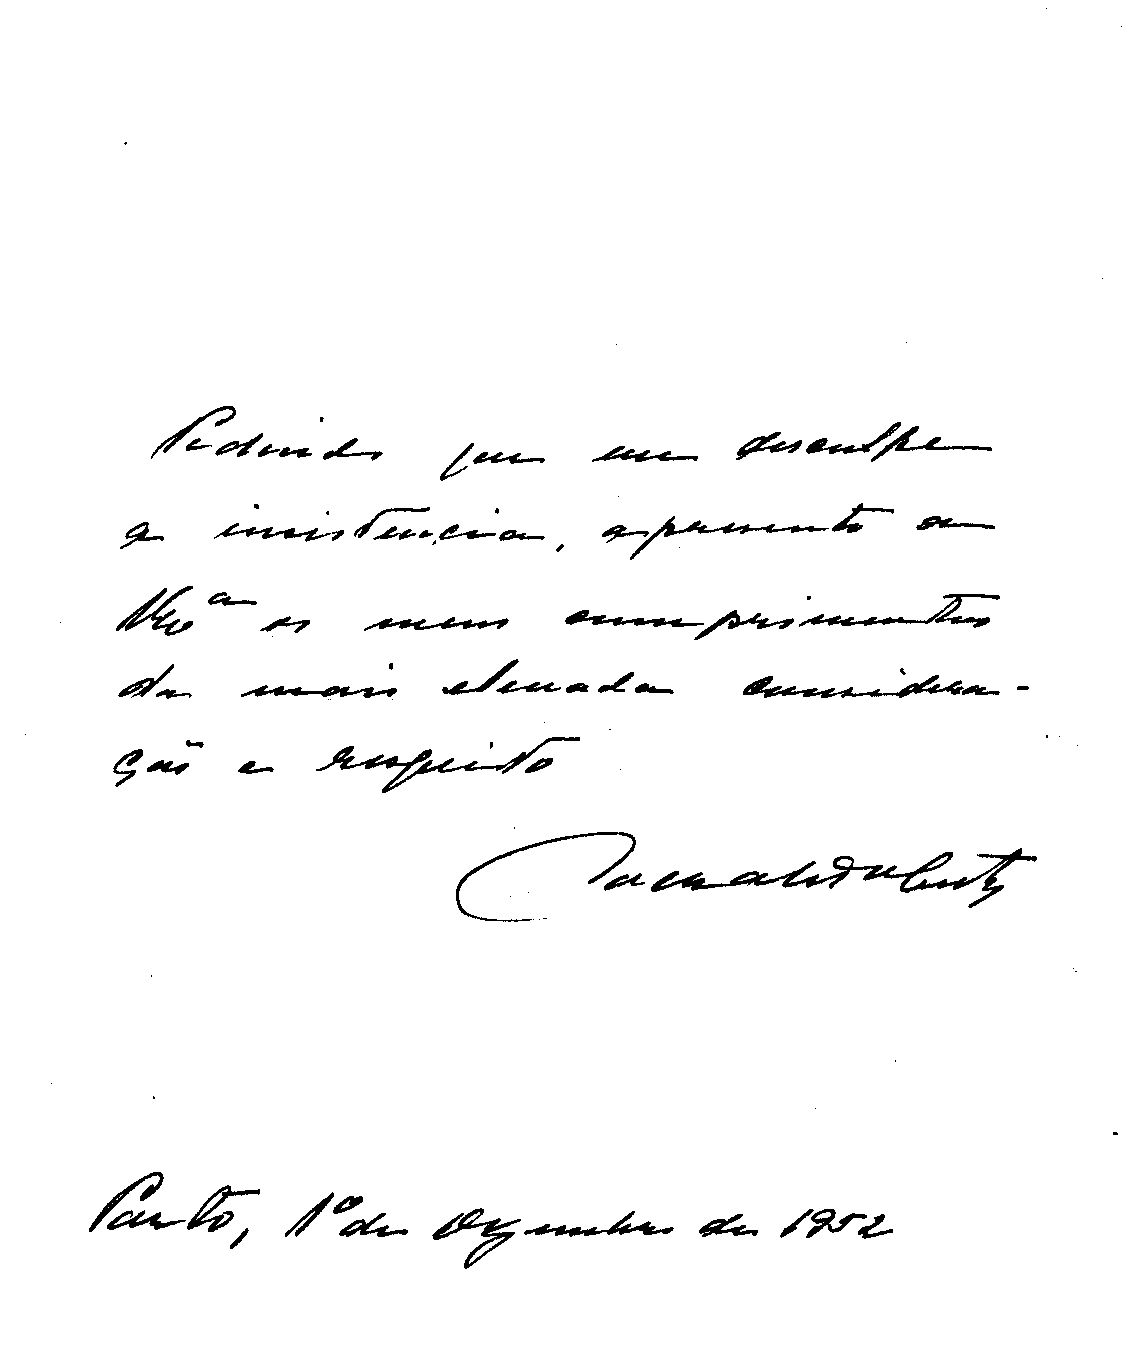 Pedindo que me desculpe
a insistencia, apresento a
V. Exª os meus cumprimentos
da mais elevada considera-
ção e respeito
Porto, 1º de Dezembro de 1952